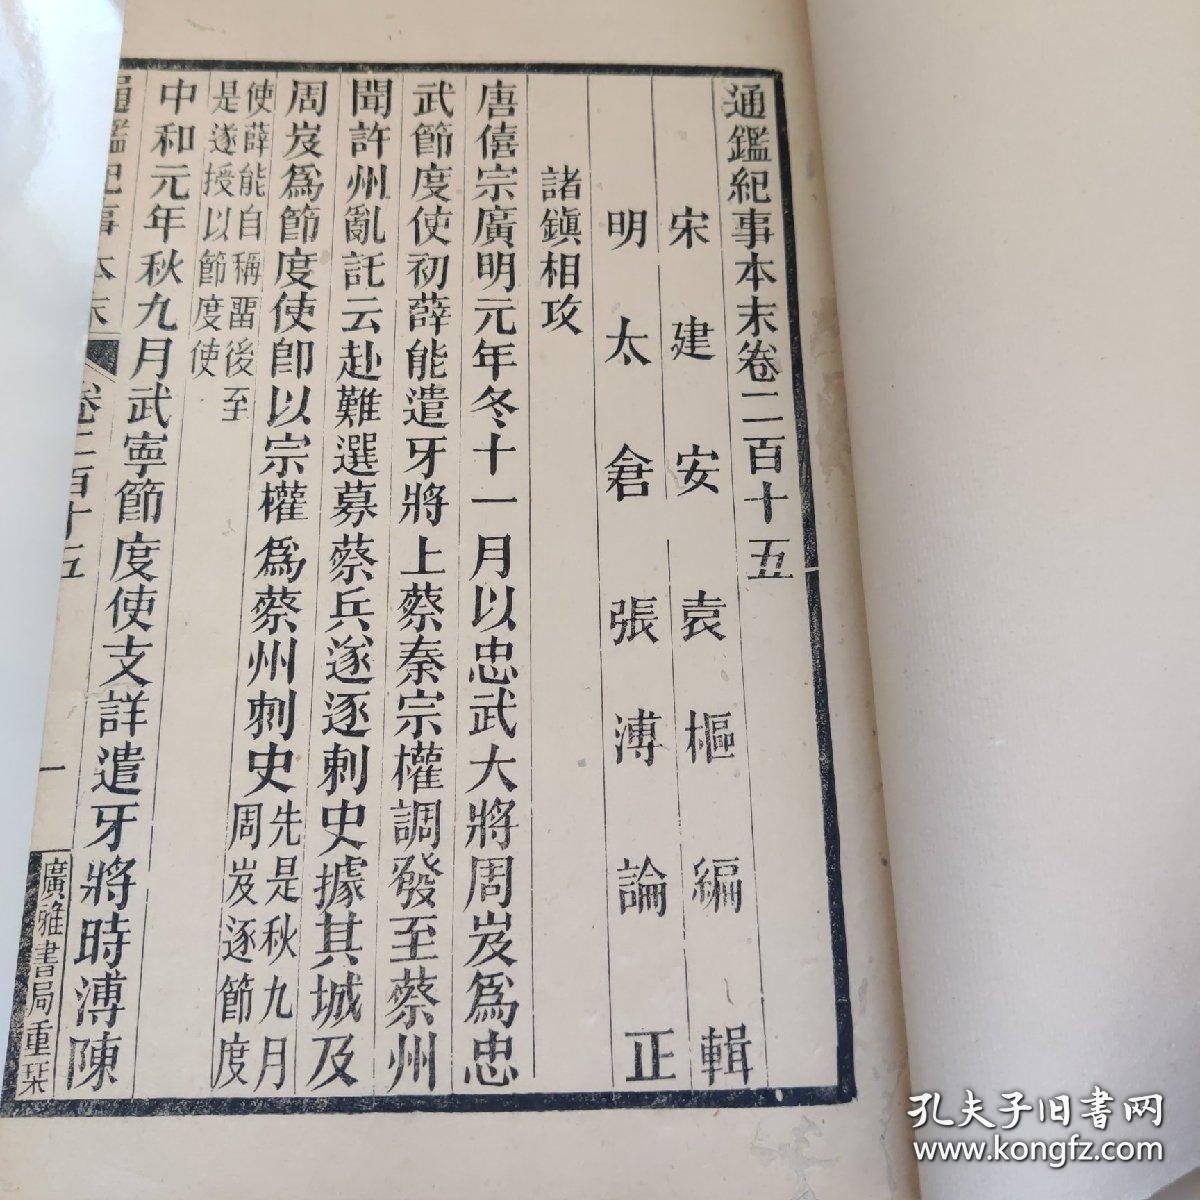 通鑑紀事本末卷二百十五
宋建安袁樞編輯
明太倉張溥論正
諸鎮相攻
唐僖宗廣明元年冬十一月以忠武大將周岌爲忠
武節度使初薛能遣牙將上蔡秦宗權調發至蔡州
聞許州亂託云赴難選募蔡兵遂逐刺史據其城及
周岌爲節度使卽以宗權爲蔡州刺史先是秋九月
周岌逐節度
使薛能自稱畱後至
是遂授以節度使
中和元年秋九月武寧節度使支詳遣牙將時溥陳
通鑑紀事本末
卷二百十五
一
廣雅書局重栞
孔夫子旧书网
www.kongfz.com